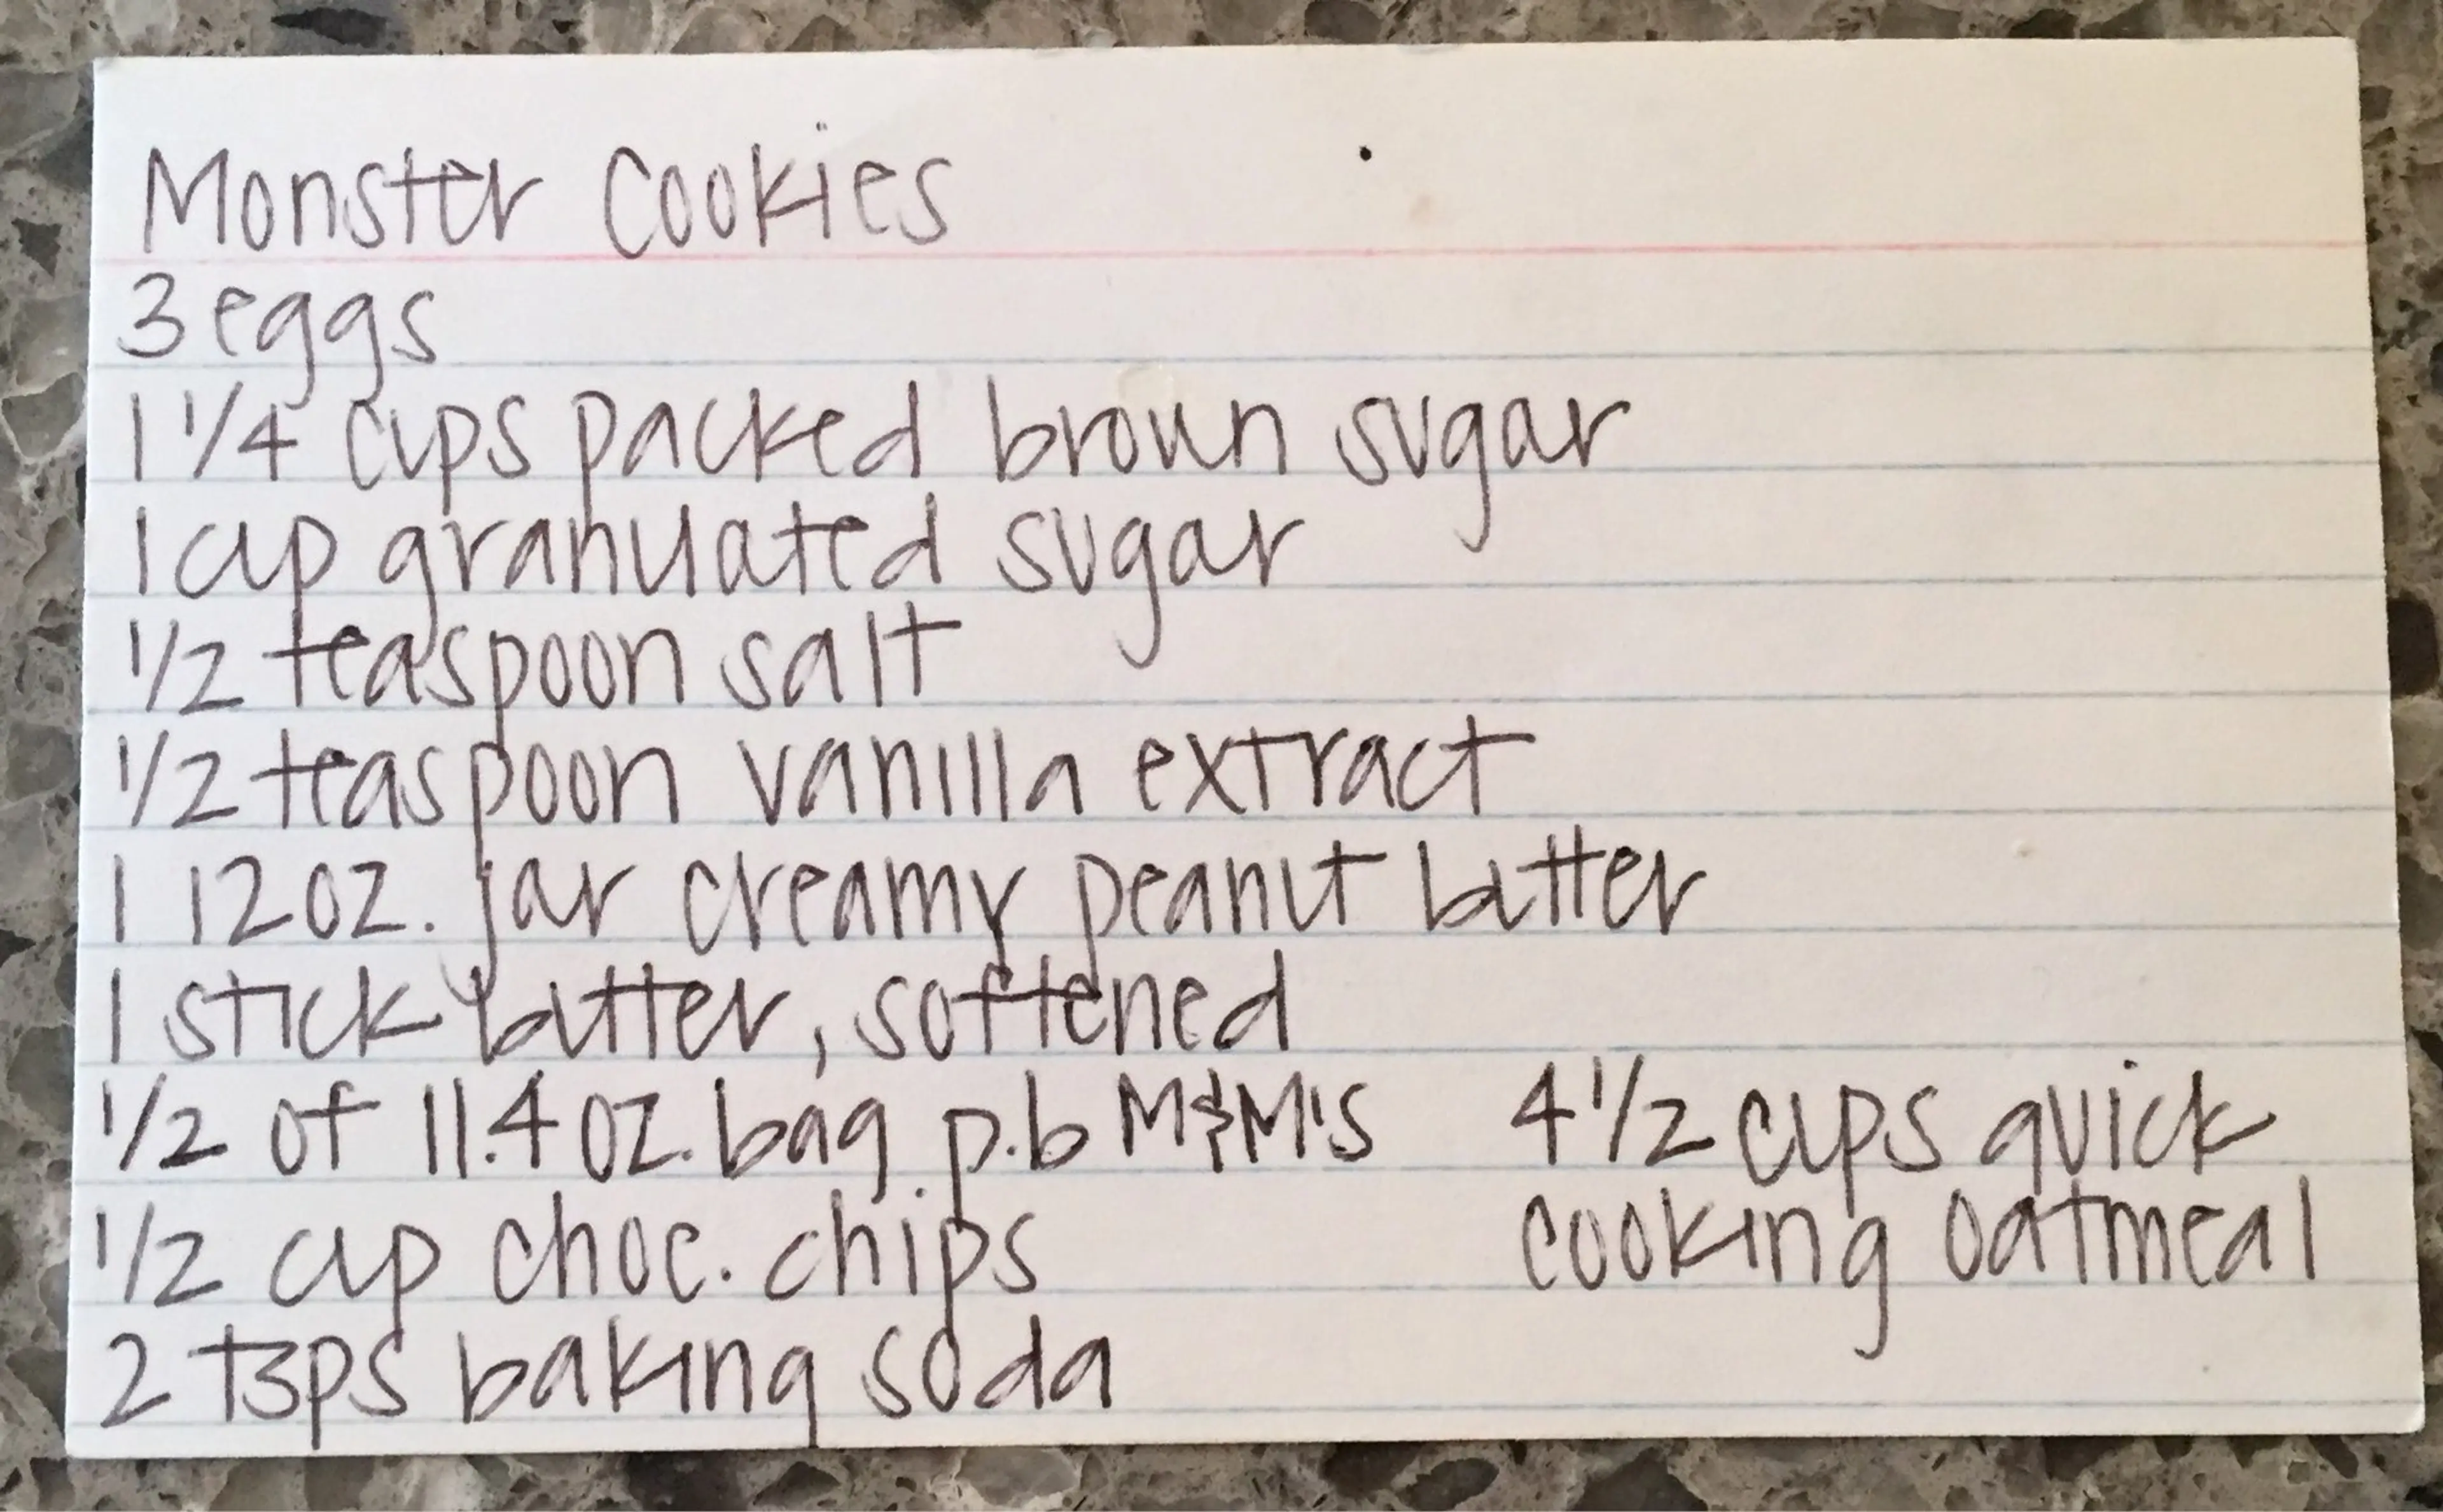 Monster Cookies
3 eggs
1 1/4 cups packed brown sugar
1 cup granulated sugar
1/2 teaspoon salt
1/2 teaspoon vanilla extract
1 12 oz. jar creamy peanut butter
1 stick butter, softened
1/2 of 11.4 oz. bag p.b M&M's
1/2 cup choc. chips
2 tsps baking soda
4 1/2 cups quick
cooking oatmeal